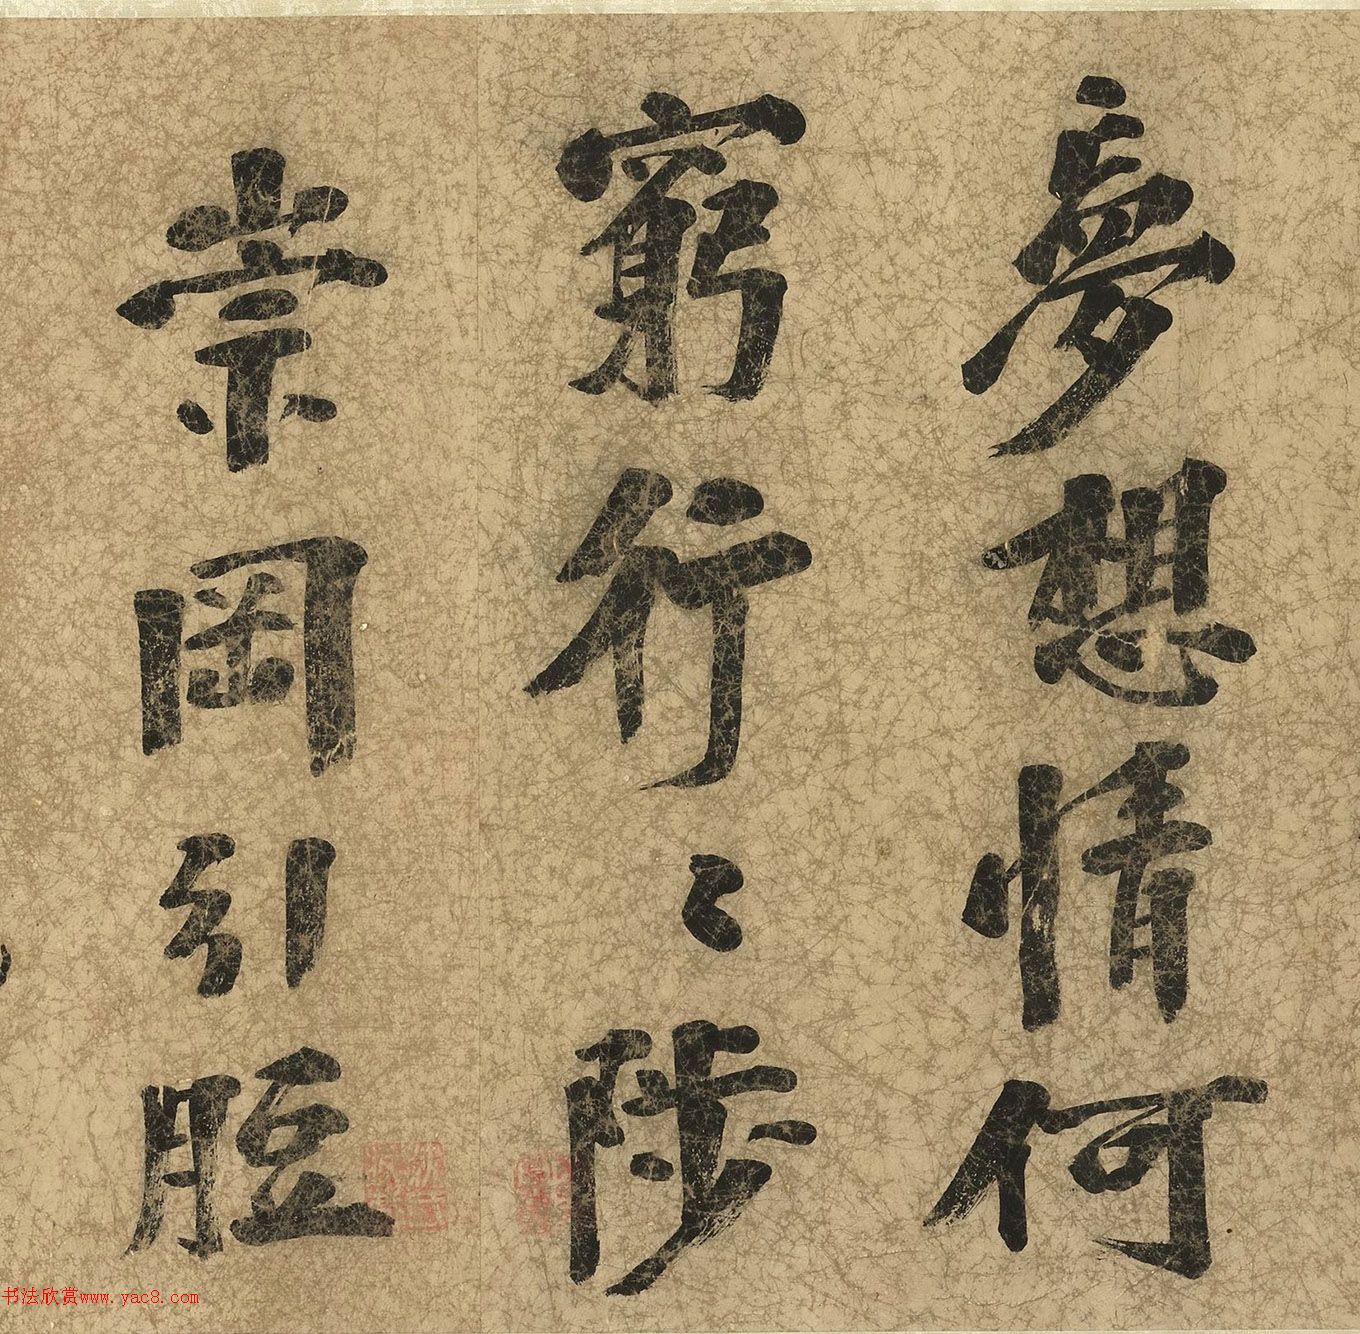 夢想情何
窮行〻陟
崇岡引脰
书法欣赏www.yac8.com